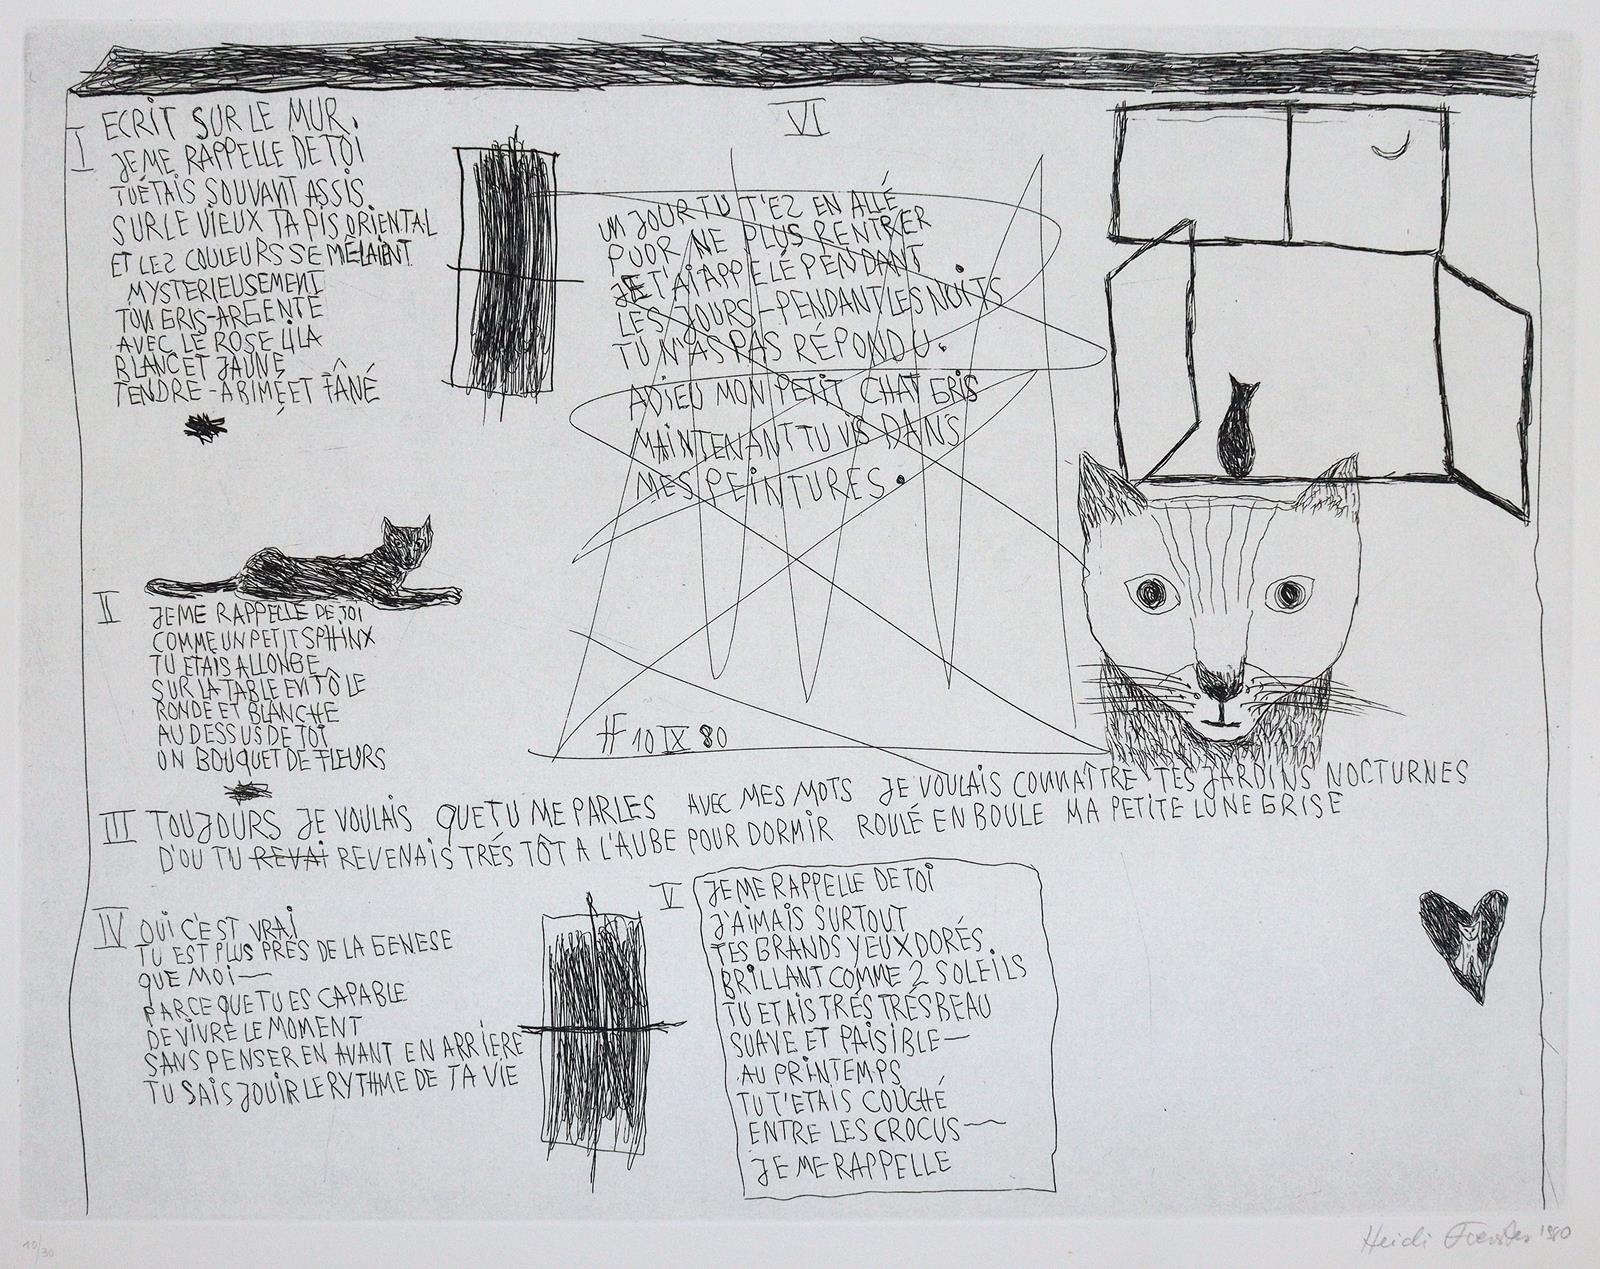 I
ECRIT SUR LE MUR.
JE ME RAPPELLE DE TOI
TU ÉTAIS SOUVANT ASSIS
SUR LE VIEUX TAPIS ORIENTAL
ET LES COULEURS SE MÊLAIENT
MYSTERIEUSEMENT
TON GRIS-ARGENTÉ
AVEC LE ROSE LILA
BLANC ET JAUNE
TENDRE - ABIMÉ ET FÂNÉ
II
JE ME RAPPELLE DE TOI
COMME UN PETIT SPHINX
TU ETAIS ALLONGE
SUR LA TABLE EN TÔLE
RONDE ET BLANCHE
AU DESSUS DE TOI
UN BOUQUET DE FLEURS
III
TOUJOURS JE VOULAIS QUE TU ME PARLES AVEC MES MOTS JE VOULAIS CONNAÎTRE TES JARDINS NOCTURNES
D'OU TU REVAI REVENAIS TRÉS TÔT A L'AUBE POUR DORMIR ROULÉ EN BOULE MA PETITE LUNE GRISE
IV
OUI C'EST VRAI
TU EST PLUS PRÈS DE LA GENESE
QUE MOI—
PARCE QUE TU ES CAPABLE
DE VIVRE LE MOMENT
SANS PENSER EN AVANT EN ARRIERE
TU SAIS JOUIR LE RYTHME DE TA VIE
V
JE ME RAPPELLE DE TOI
J'AIMAIS SURTOUT
TES GRANDS YEUX DORÉS.
BRILLANT COMME 2 SOLEILS
TU ETAIS TRÉS TRÉS BEAU
SUAVE ET PAISIBLE—
AU PRINTEMPS
TU T'ETAIS COUCHÉ
ENTRE LES CROCUS—
JE ME RAPPELLE
VI
UN JOUR TU T'ES EN ALLÉ
POUR NE PLUS RENTRER
JE T'AI APPELÉ PENDANT
LES JOURS - PENDANT LES NUITS
TU N'AS PAS RÉPONDU.
ADIEU MON PETIT CHAT GRIS
MAINTENANT TU VIS DANS
MES PEINTURES.
HF 10 IX 80
10/30
Heidi Foerster 1980